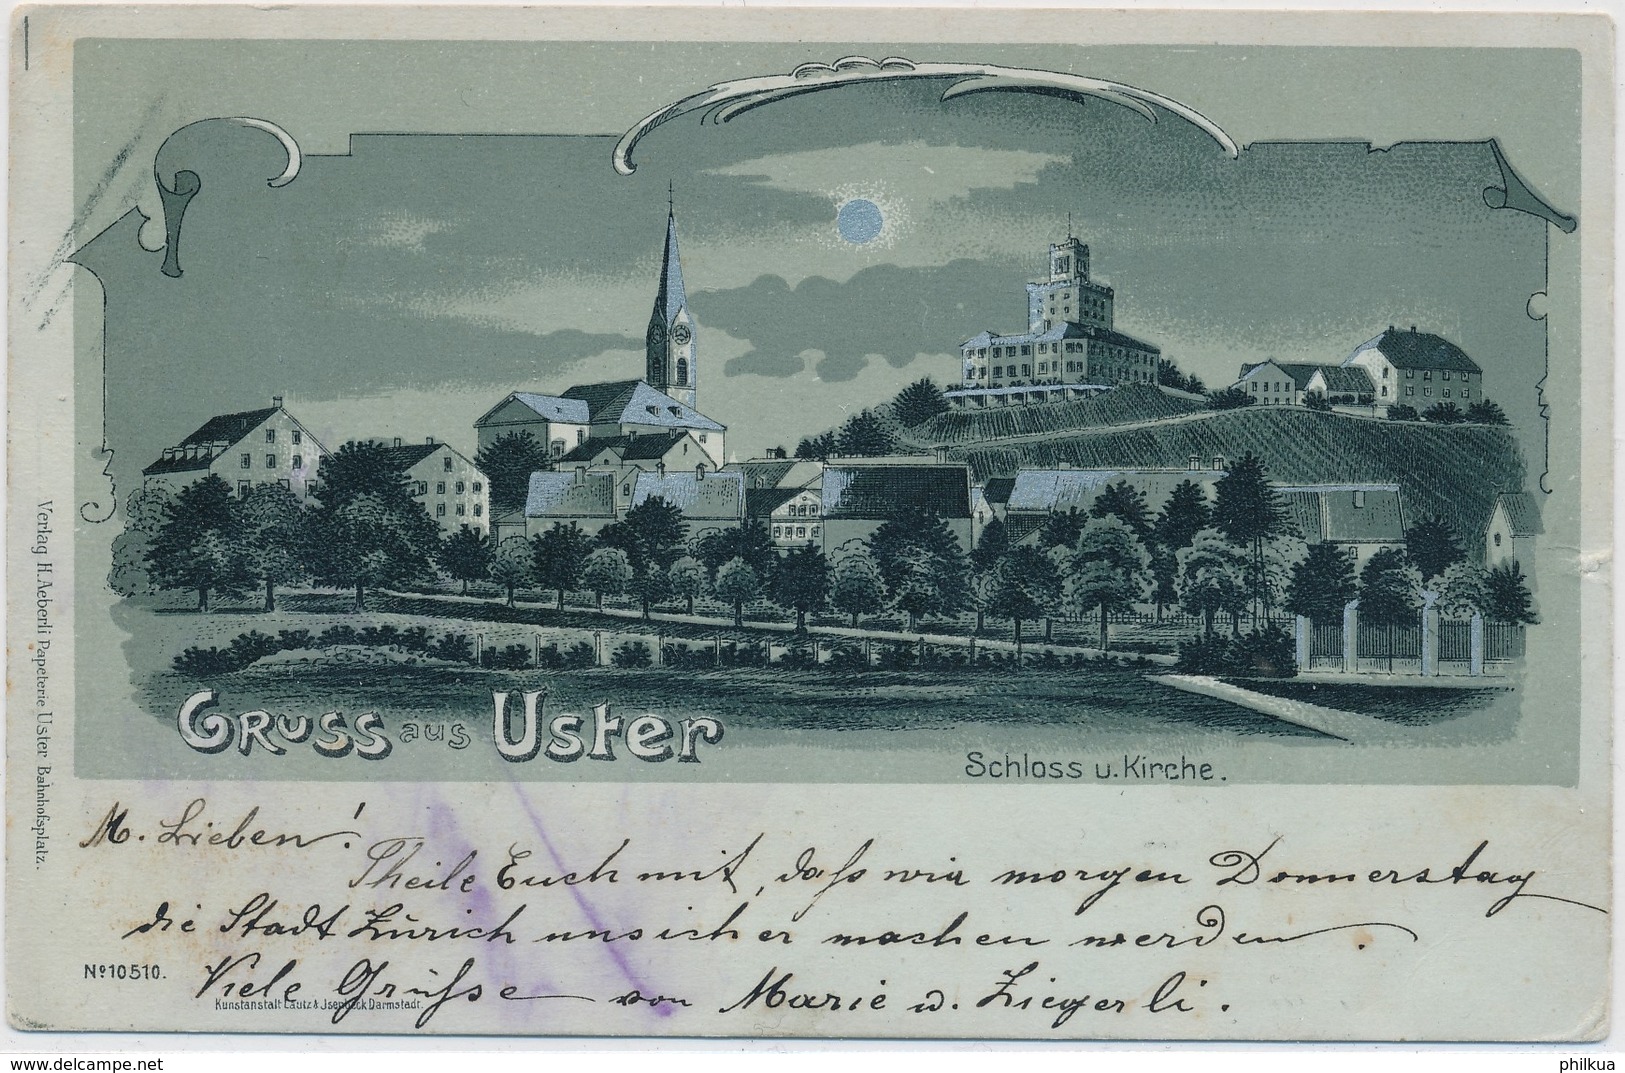 Gruss aus Uster
Schloss u. Kirche.
Verlag H. Aeberli Papeterie Uster Bahnhofsplatz.
M. Lieben!
Theile Euch mit, daß wir morgen Donnerstag
die Stadt Zürich unsicher machen werden.
Nº 10510.
Viele Grüße von Marie u. Ziegerli.
Kunstanstalt Lautz & Jsenbeck Darmstadt.
www.delcampe.net
philkua